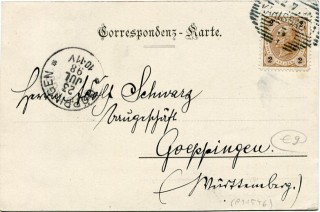 Correspondenz-Karte.
2 2
GÖPPINGEN
23
JUL
98
Herrn Adolf Schwarz
Baugeschäft
Goeppingen.
(Württemberg.)
€9